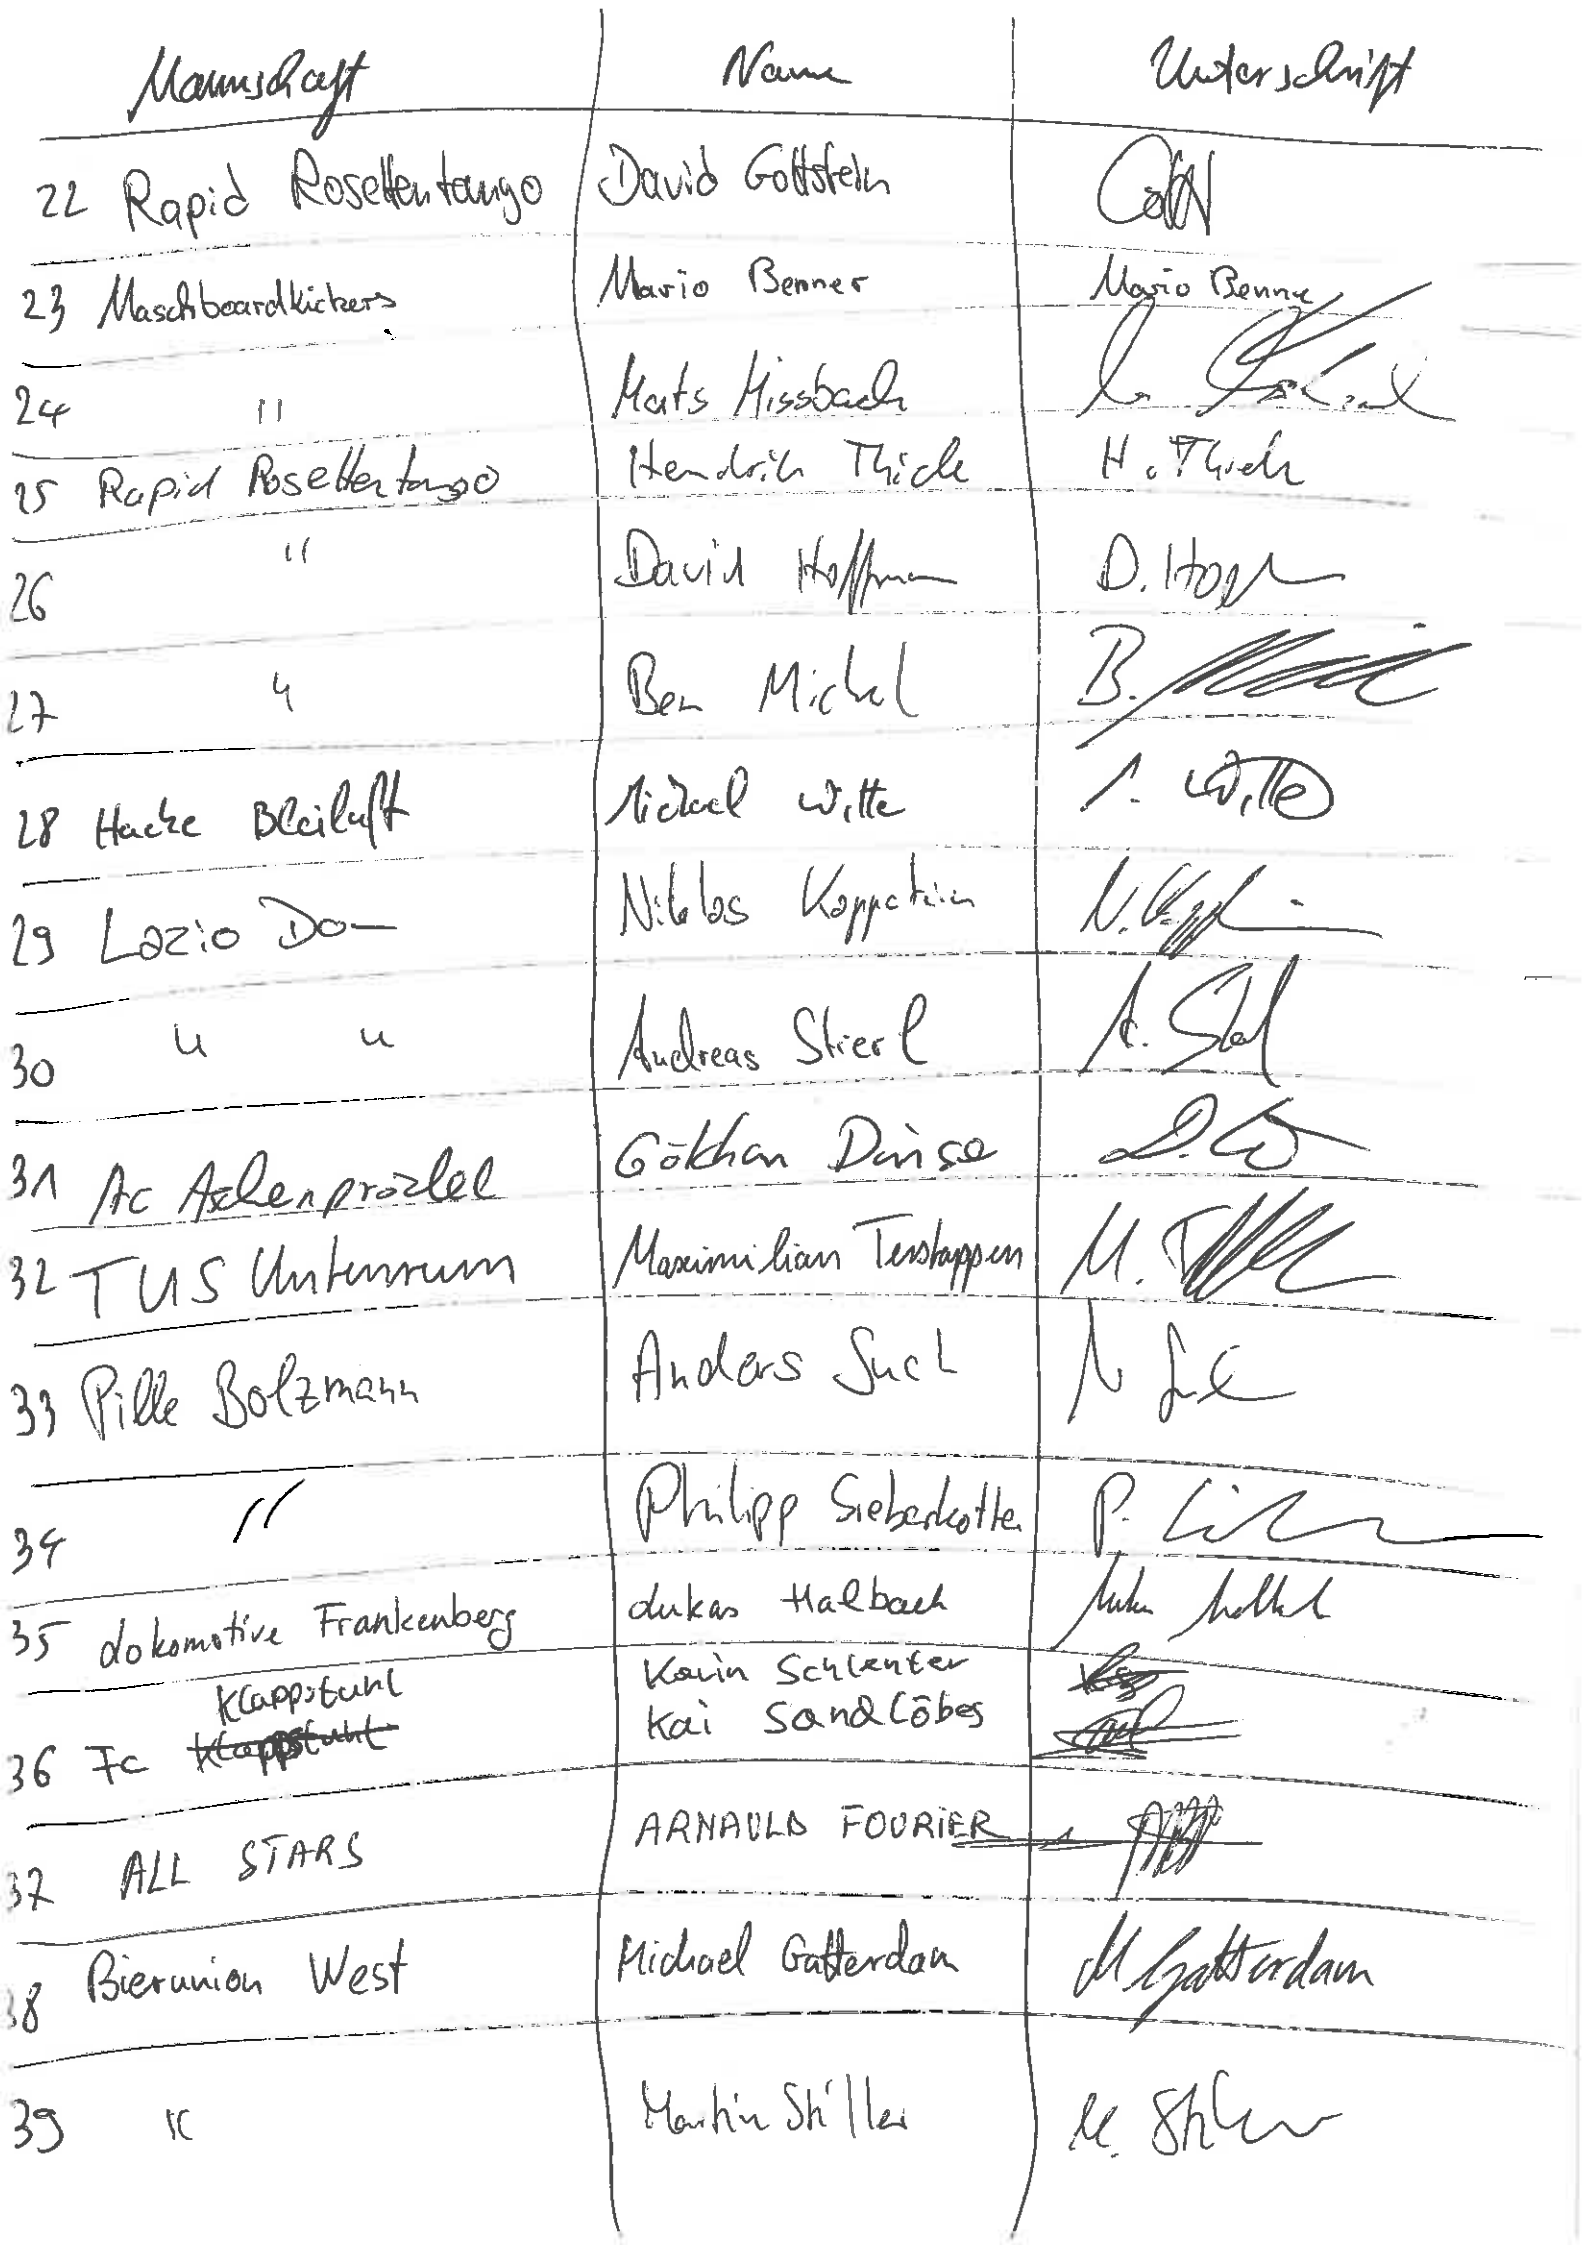 Mannschaft Name Unterschrift
22 Rapid Rosettentango David Gottstein
23 Maschboardkickers Mario Benner Mario Benner
24 " Mats Missbach
25 Rapid Rosettentango Hendrik Thiele H. Thiele
26 " David Hoffmann D.
27 " Ben Michel B.
28 Hacke Bleiluft Michael Witte M. Witte
29 Lazio Dom Niklas N.
30 " " Andreas Stierl A.
31 AC Aschenprödel Gökhan
32 TUS Untenrum Maximilian Terstappen M.
33 Pille Bolzmann Anders Such
34 " Philipp Sieberkotten P.
35 Lokomotive Frankenberg Lukas Halbach
Klappstuhl Karin Schlenter
36 FC Klappstuhl Kai Sandlöbes
37 ALL STARS ARNAULD FOURIER
38 Bierunion West Michael Gatterdam M Gatterdam
39 " Martin Stiller M.